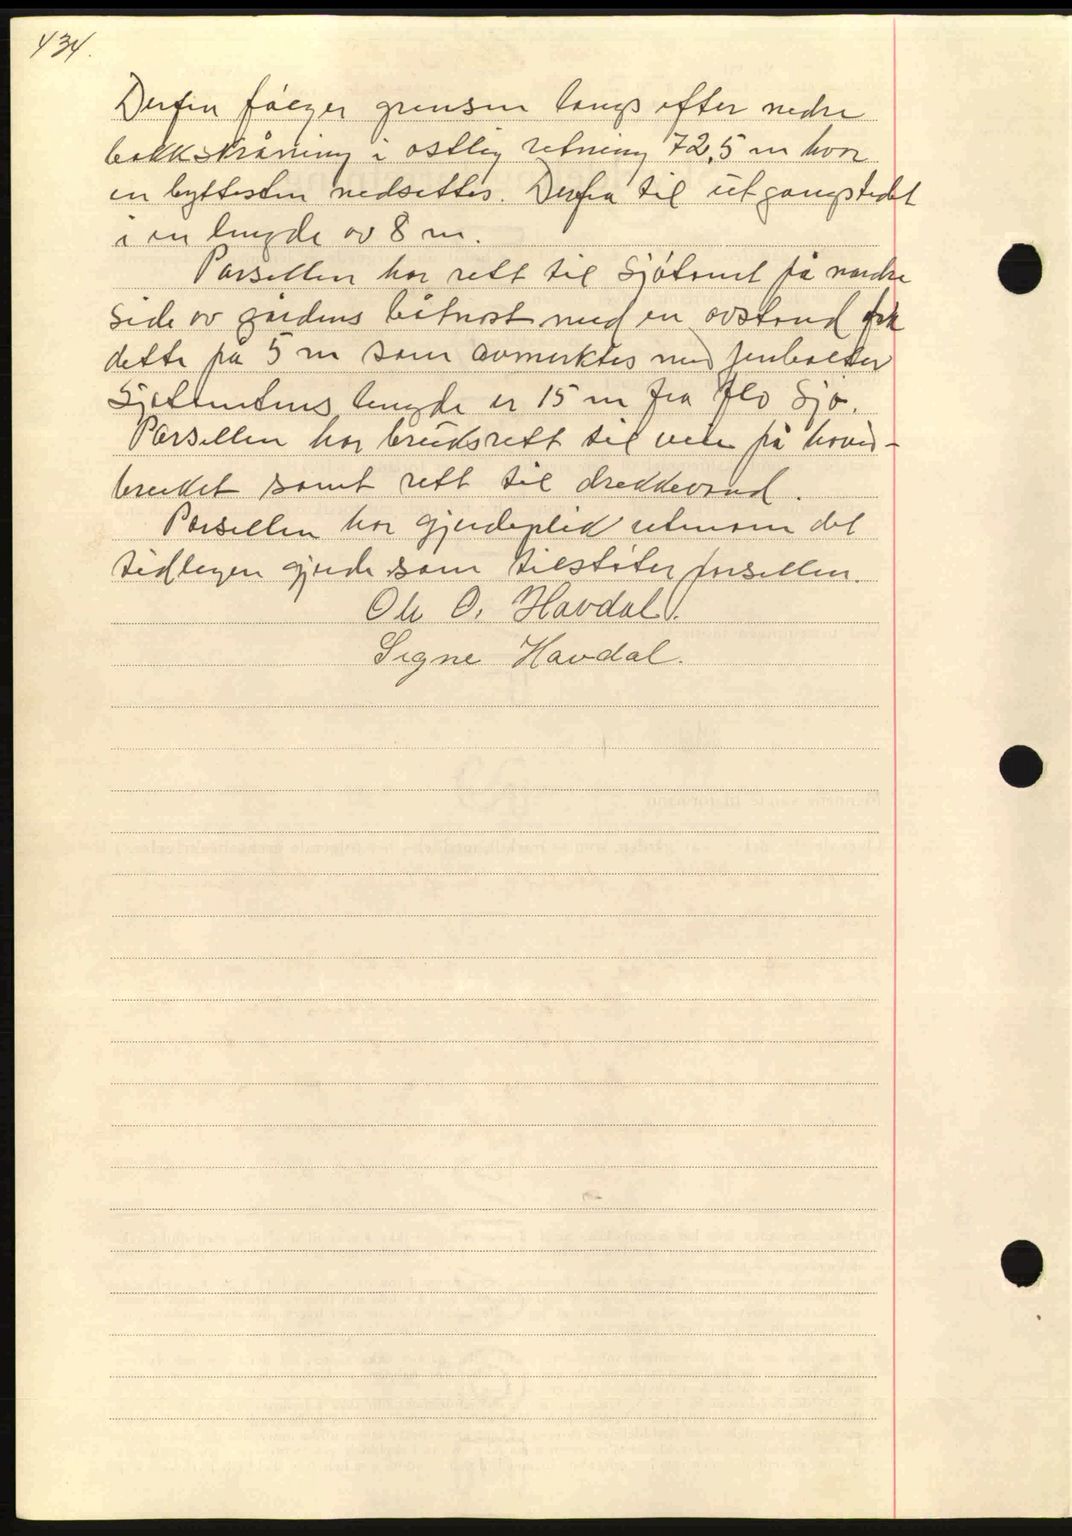 434.
Derfra følger grensen langs efter nedre
bakkskråning i østlig retning 72,5 m hvor
en byttesten nedsettes. Derfra til utgangstedet
i en lengde av 8 m.
Parsellen har rett til sjøtomt på nordre
side av gårdens båtnøst med en avstand fra
dette på 5 m som avmerktes med jernbolter
Sjøtomtens lengde er 15 m fra flo sjø.
Parsellen har bruksrett til vei på hoved-
bruket samt rett til drekkevand.
Parsellen har gjerdeplikt utenom det
tidligere gjerde som tilstøter parsellen.
Ole O. Havdal.
Signe Havdal.